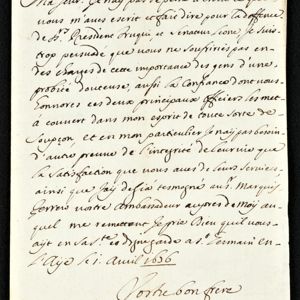 vous m'aves escrit et fait dire pour la deffence
de Sr. President
trop persuadé que vous ne souffririés pas en
des charges de cette importance des gens d'une
probité douteuse, aussi la Confiance dont vous
honnorés ces deux principaux officiers les met
a couvert dans mon esprit de toute sorte de
soupçon, et en mon particulier Je n'ay pas besoin
d'autre preuve de l'integrité de leur vie que
la Satisfaction que vous aves de leurs services
ainsi que J'ay desia tesmogné au Marquis
vostre Ambassadeur aupres de moy au
quel me remettant Je prie Dieu qu'il vous
ayt en sa Ste. et digne garde a St. Germain en
l'Aye le 1 Avril 1636
Vostre bon frere